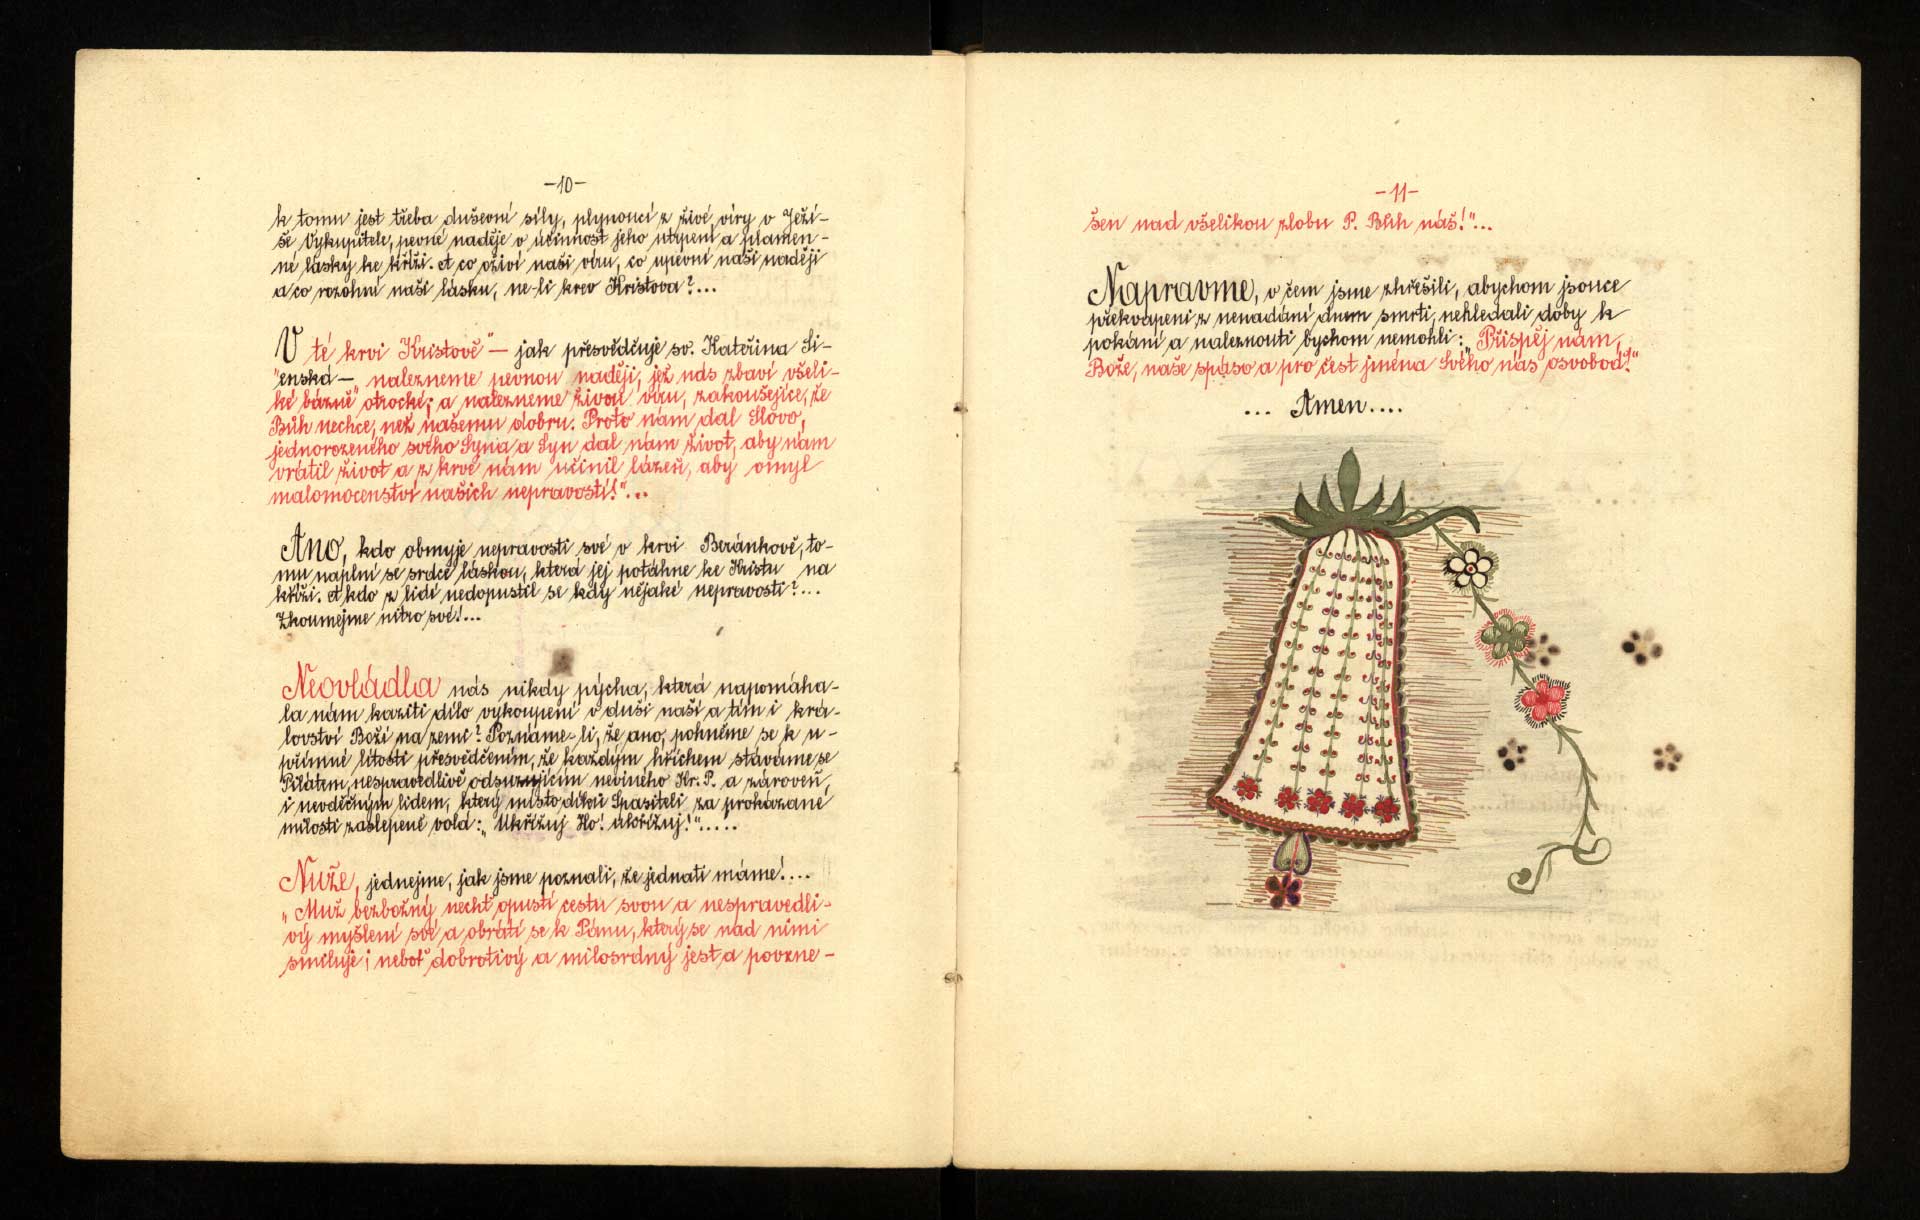 -10-
k tomu jest třeba duševní síly, plynoucí z živé víry v Ježí-
še Vykupitele, pevné naděje v účinnost jeho utrpení a plamen-
né lásky ke kříži. A co oživí naši víru, co upevní naši naději
a co rozohní naši lásku, ne-li krev Kristova?...
V té krvi Kristově" — jak přesvědčuje sv. Kateřina Si-
enská — "nalezneme pevnou naději, jež nás zbaví všeli-
ké bázně otrocké; a nalezneme živou víru, zakoušejíce, že
Bůh nechce, než našemu dobru. Proto nám dal Slovo,
jednorozeného svého Syna a Syn dal nám život, aby nám
vrátil život a z krve nám učinil lázeň, aby omyl
malomocenství našich nepravostí!"...
Ano, kdo obmyje nepravosti své v krvi Beránkově, to-
mu naplní se srdce láskou, která jej potáhne ke Kristu na
kříži. A kdo z lidí nedopustil se kdy nějaké nepravosti?...
Zkoumejme nitro své!...
Neovládla nás nikdy pýcha, která napomáha-
la nám kaziti dílo vykoupení v duši naší a tím i krá-
lovství Boží na zemi? Poznáme-li, že ano, pohněme se k u-
přímné lítosti přesvědčením, že každým hříchem stáváme se
Pilátem, nespravedlivě odsuzujícím nevinného Kr. P. a zároveň,
i nevděčným lidem, který místo díků Spasiteli za prokázané
milosti zaslepeně volá: „Ukřižuj Ho! ukřižuj!".....
Nuže, jednejme, jak jsme poznali, že jednati máme!....
„Muž bezbožný nechť opustí cestu svou a nespravedli-
vý myšlení své a obrátí se k Pánu, který se nad ními
smiluje; neboť dobrotivý a milosrdný jest a povzne-
-11-
šen nad všelikou zlobu P. Bůh náš!"...
Napravme, v čem jsme zhřešili, abychom jsouce
překvapeni z nenadání dnem smrti, nehledali doby k
pokání a naleznouti bychom nemohli: „Přispěj nám,
Bože, naše spáso a pro čest jména Svého nás osvoboď!"
... Amen....